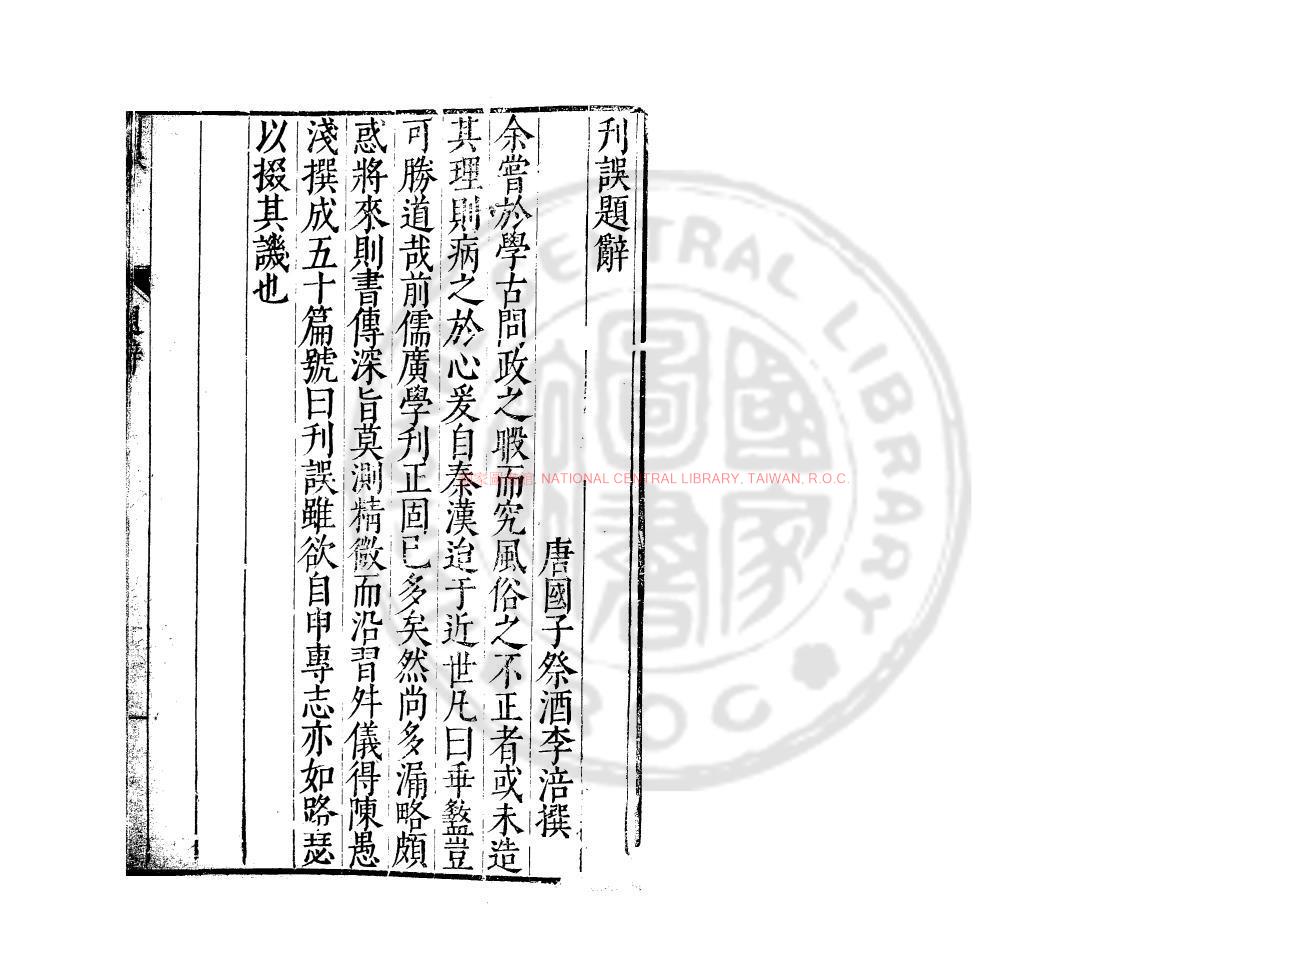 刋誤題辭
唐國子祭酒李涪撰
余嘗於學古問政之暇而究風俗之不正者或未造
其理則病之於心爰自秦漢迨于近世凡曰乖盭豈
可勝道哉前儒廣學刋正固已多矣然尚多漏略頗
惑將來則書傳深旨莫測精微而沿習舛儀得陳愚
淺撰成五十篇號曰刋誤雖欲自申專志亦如路瑟
以掇其譏也
題辭
國家圖書館 NATIONAL CENTRAL LIBRARY, TAIWAN, R.O.C.
CENTRAL LIBRARY
ROC
國家圖書